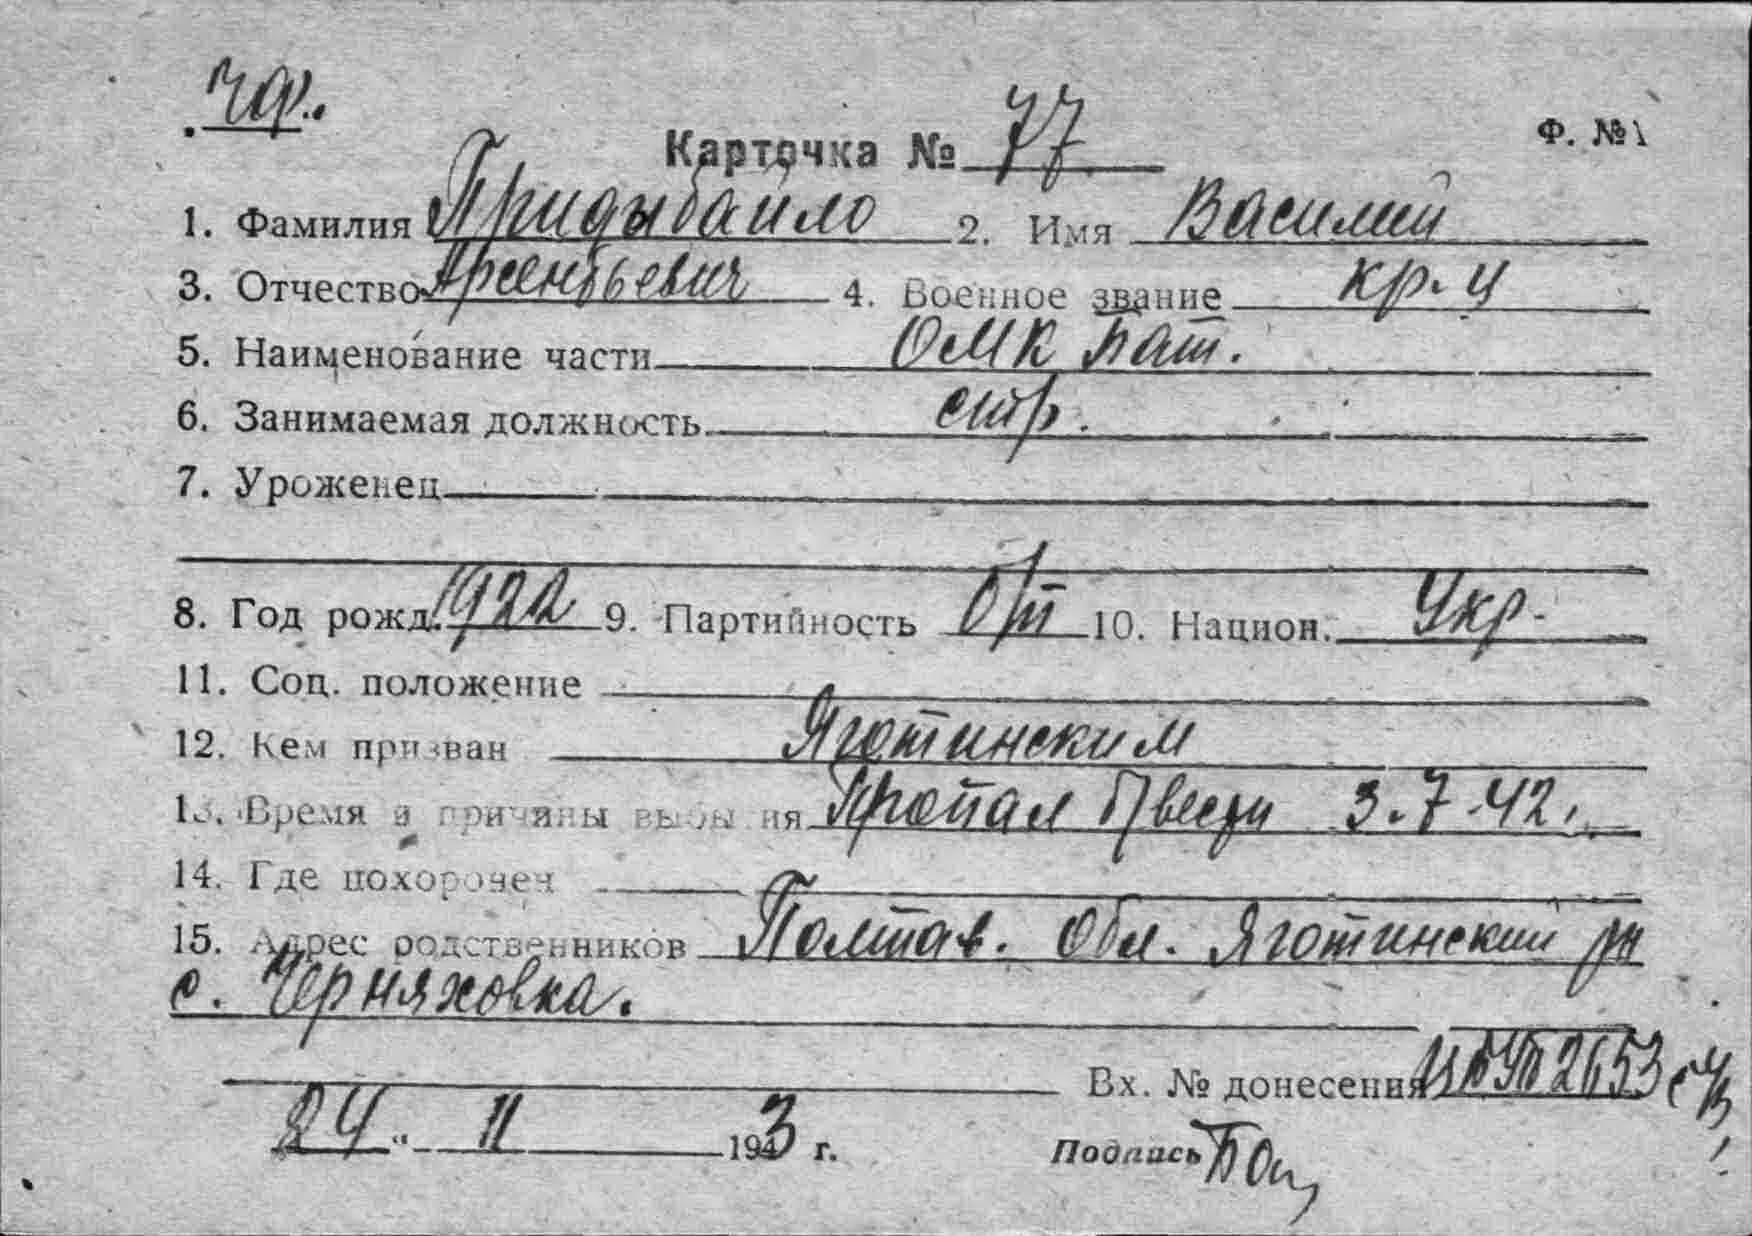 чф.
Карточка № 77 Ф. №1
1. Фамилия Придыбайло 2. Имя Василий
3. Отчество Арсентьевич 4. Военное звание кр-ц
5. Наименование части ОМК бат.
6. Занимаемая должность стр.
7. Уроженец
8. Год рожд. 1922 9. Партийность б/п 10. Национ. Укр.
11. Соц. положение
12. Кем призван Яготинским
13. Время и причины выбытия Пропал б/вести 3.7.42.
14. Где похоронен
15. Адрес родственников Полтав. обл. Яготинский рн
с. Черняховка.
Вх. № донесения 2653
24 " 11 1943 г. Подпись